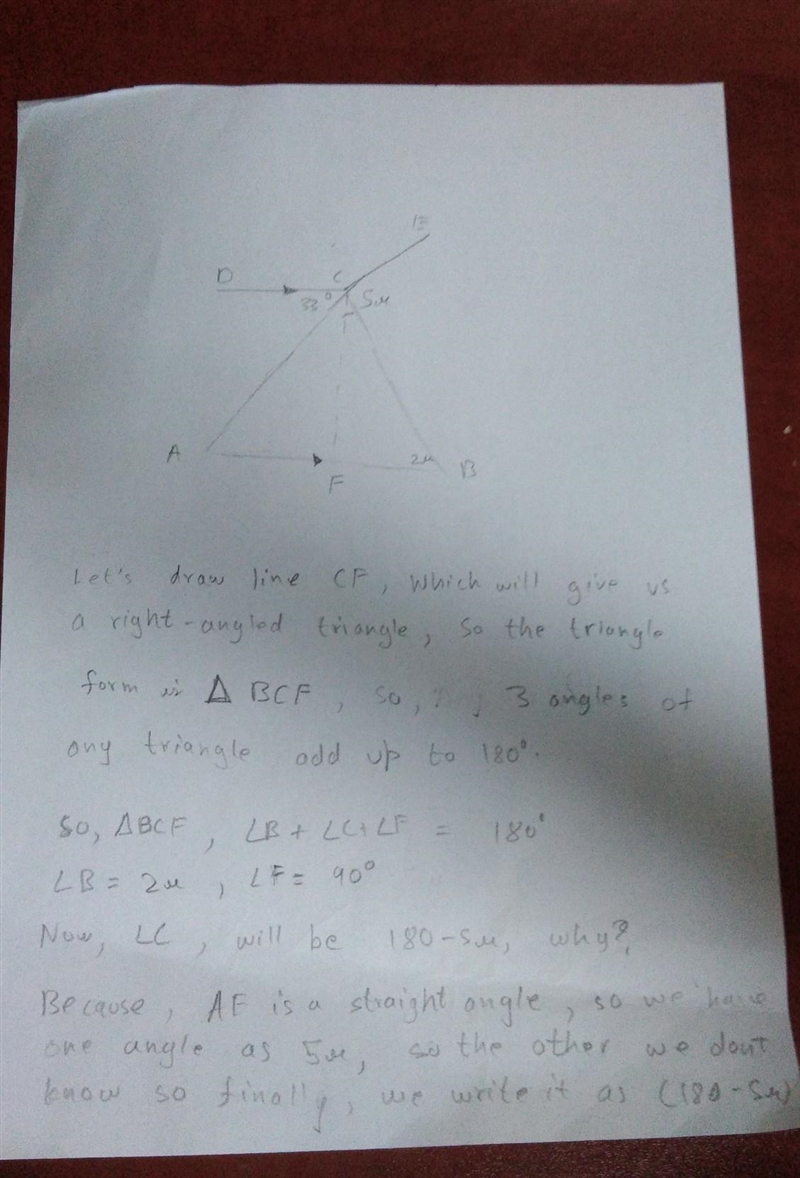 E
D C
33° 5x
A 2x B
F
Let's draw line CF, which will give us
a right-angled triangle, so the triangle
form is Δ BCF, so, 3 angles of
any triangle add up to 180°.
So, ΔBCF, ∠B + ∠C + ∠F = 180°
∠B = 2x, ∠F = 90°
Now, ∠C, will be 180-5x, why?,
Because, AE is a straight angle, so we have
one angle as 5x, so the other we dont
know so finally, we write it as (180-5x)